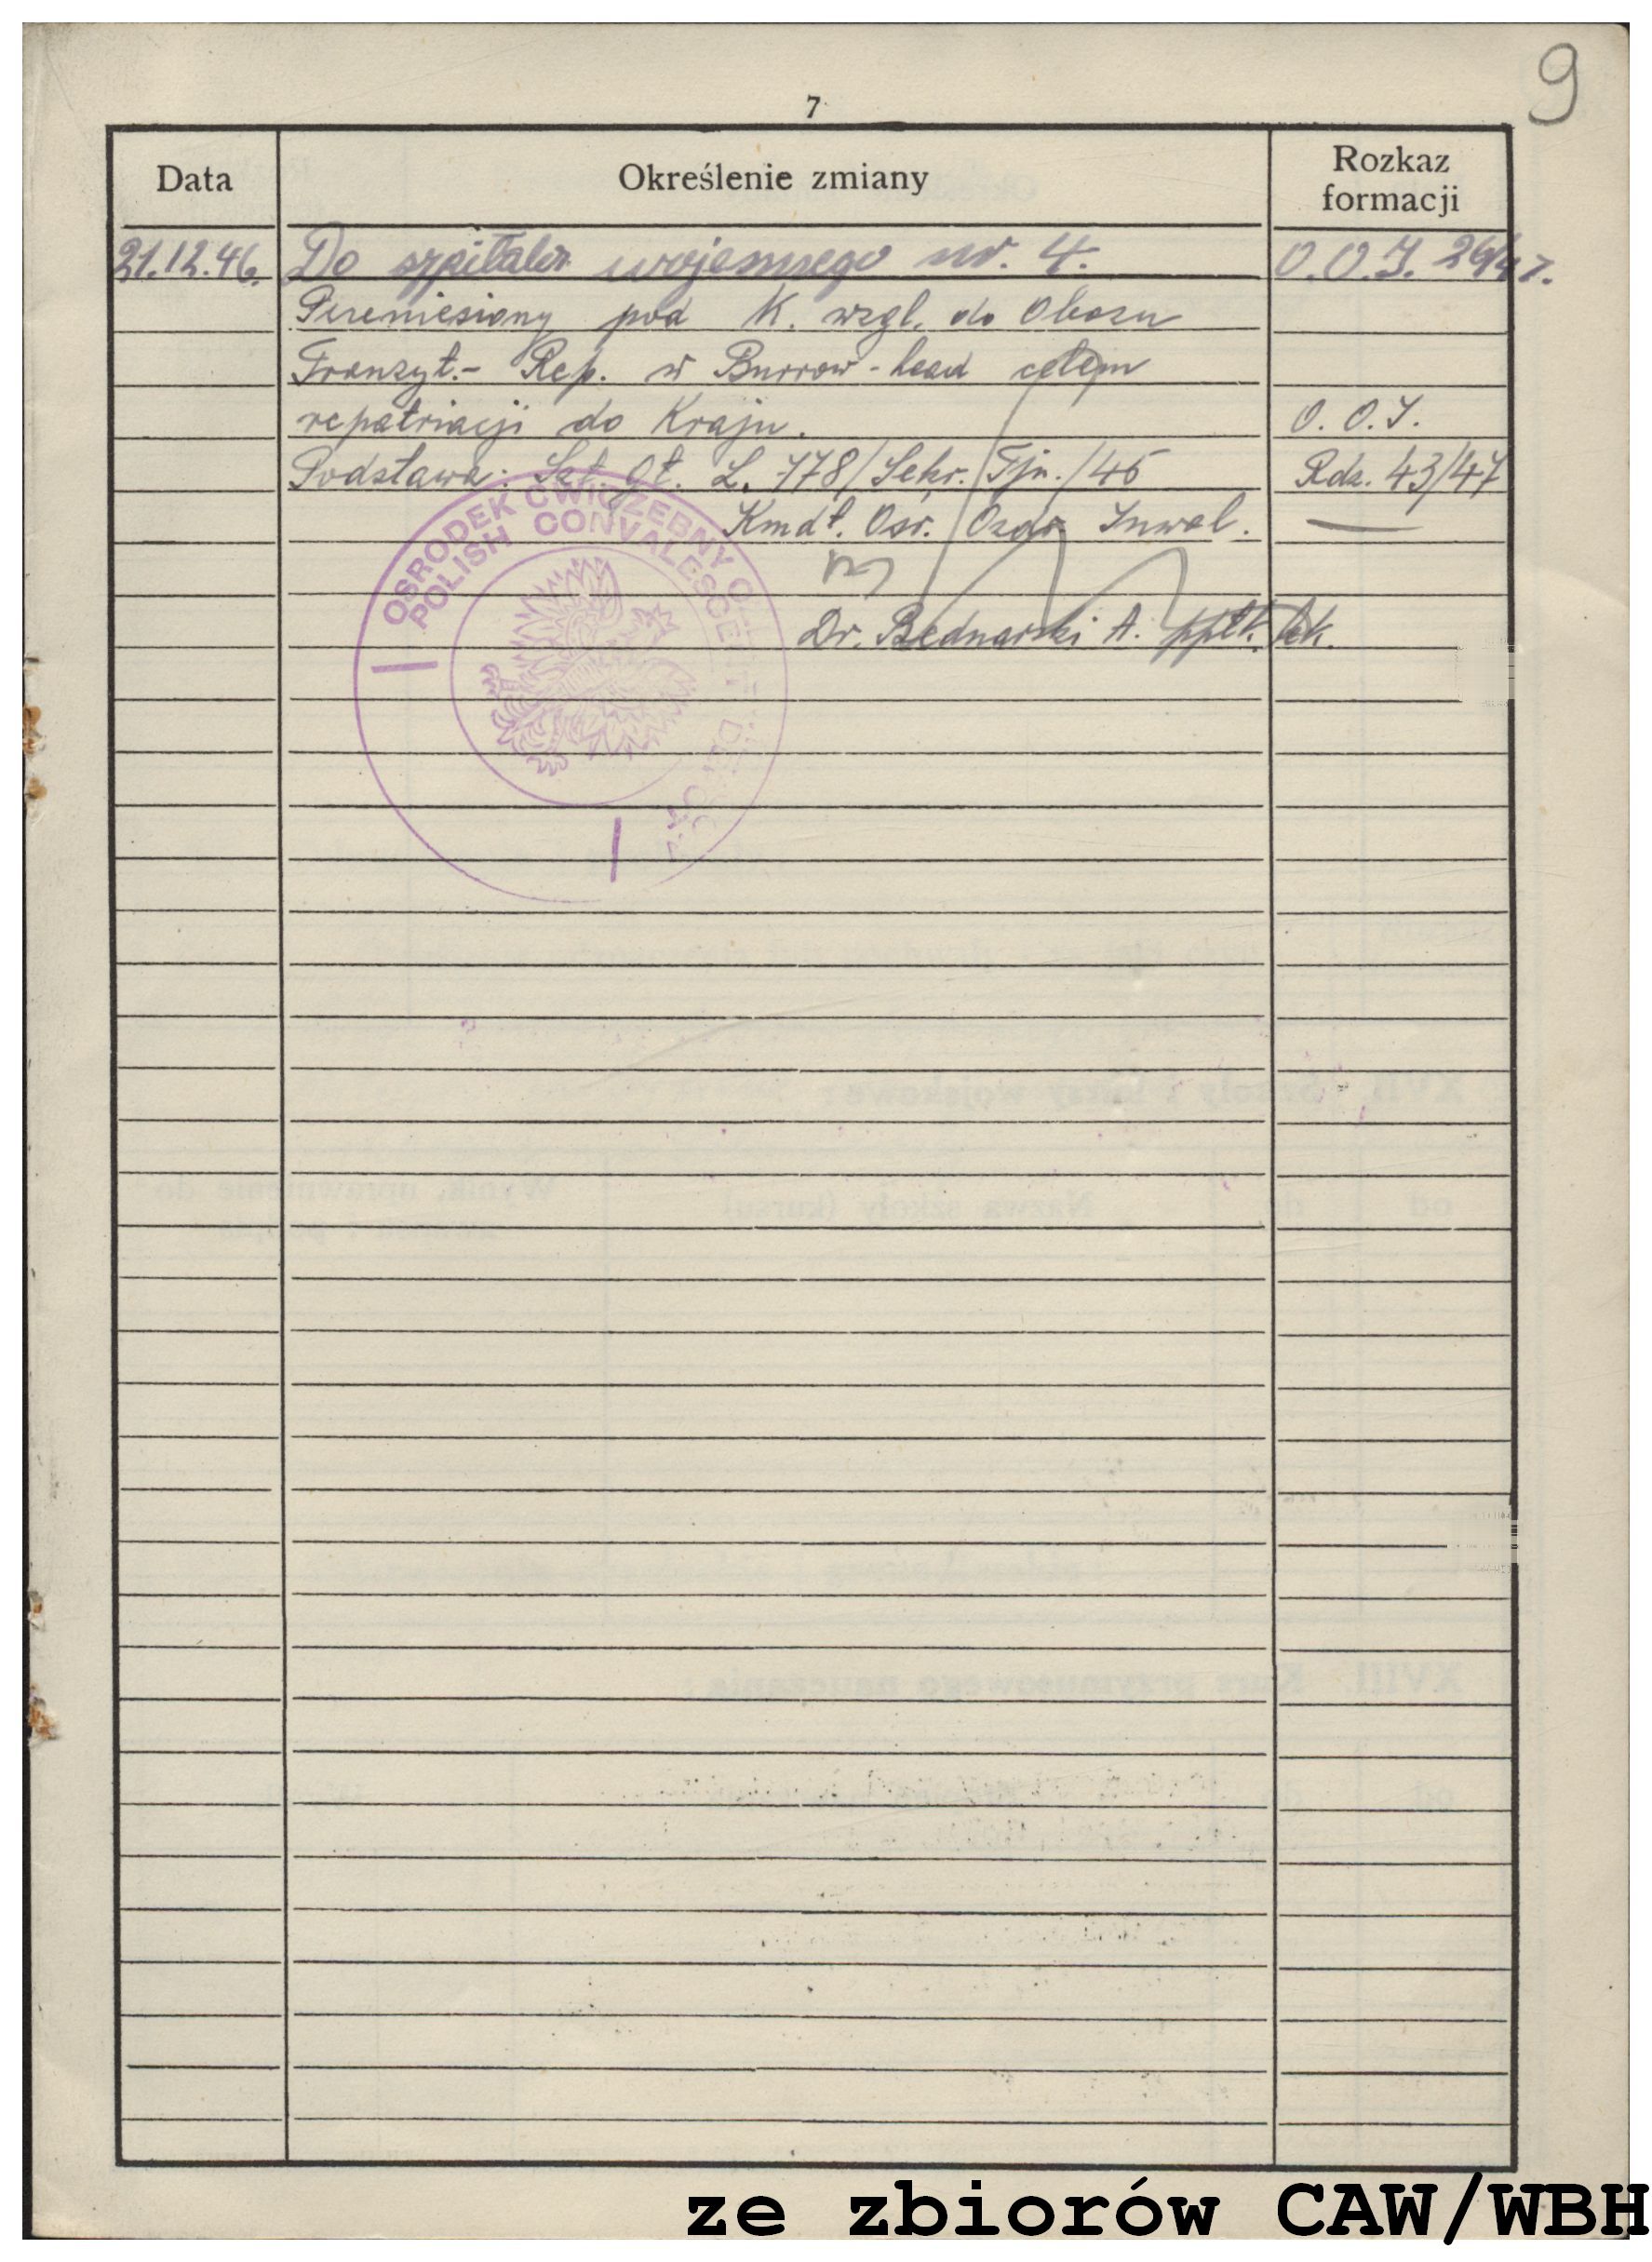 9
7
Data Określenie zmiany Rozkaz formacji
21.12.46. Do szpitala wojennego nr. 4. O.O.I. 26/47.
Przeniesiony pod K. wzgl. do Obozu
Tranzyt.- Rep. w Burrow-head celem
repatriacji do Kraju. O.O.I.
Podstawa: Szt. Gł. L. 778/Sekr. Tjn./46 Rdz. 43/47
Kmdt. Ośr. Ozdr. Inwal.
Dr. Bednarski A. ppłk. lek.
OŚRODEK ĆWICZEBNY O
POLISH CONVALESCENT DEPOT
ze zbiorów CAW/WBH